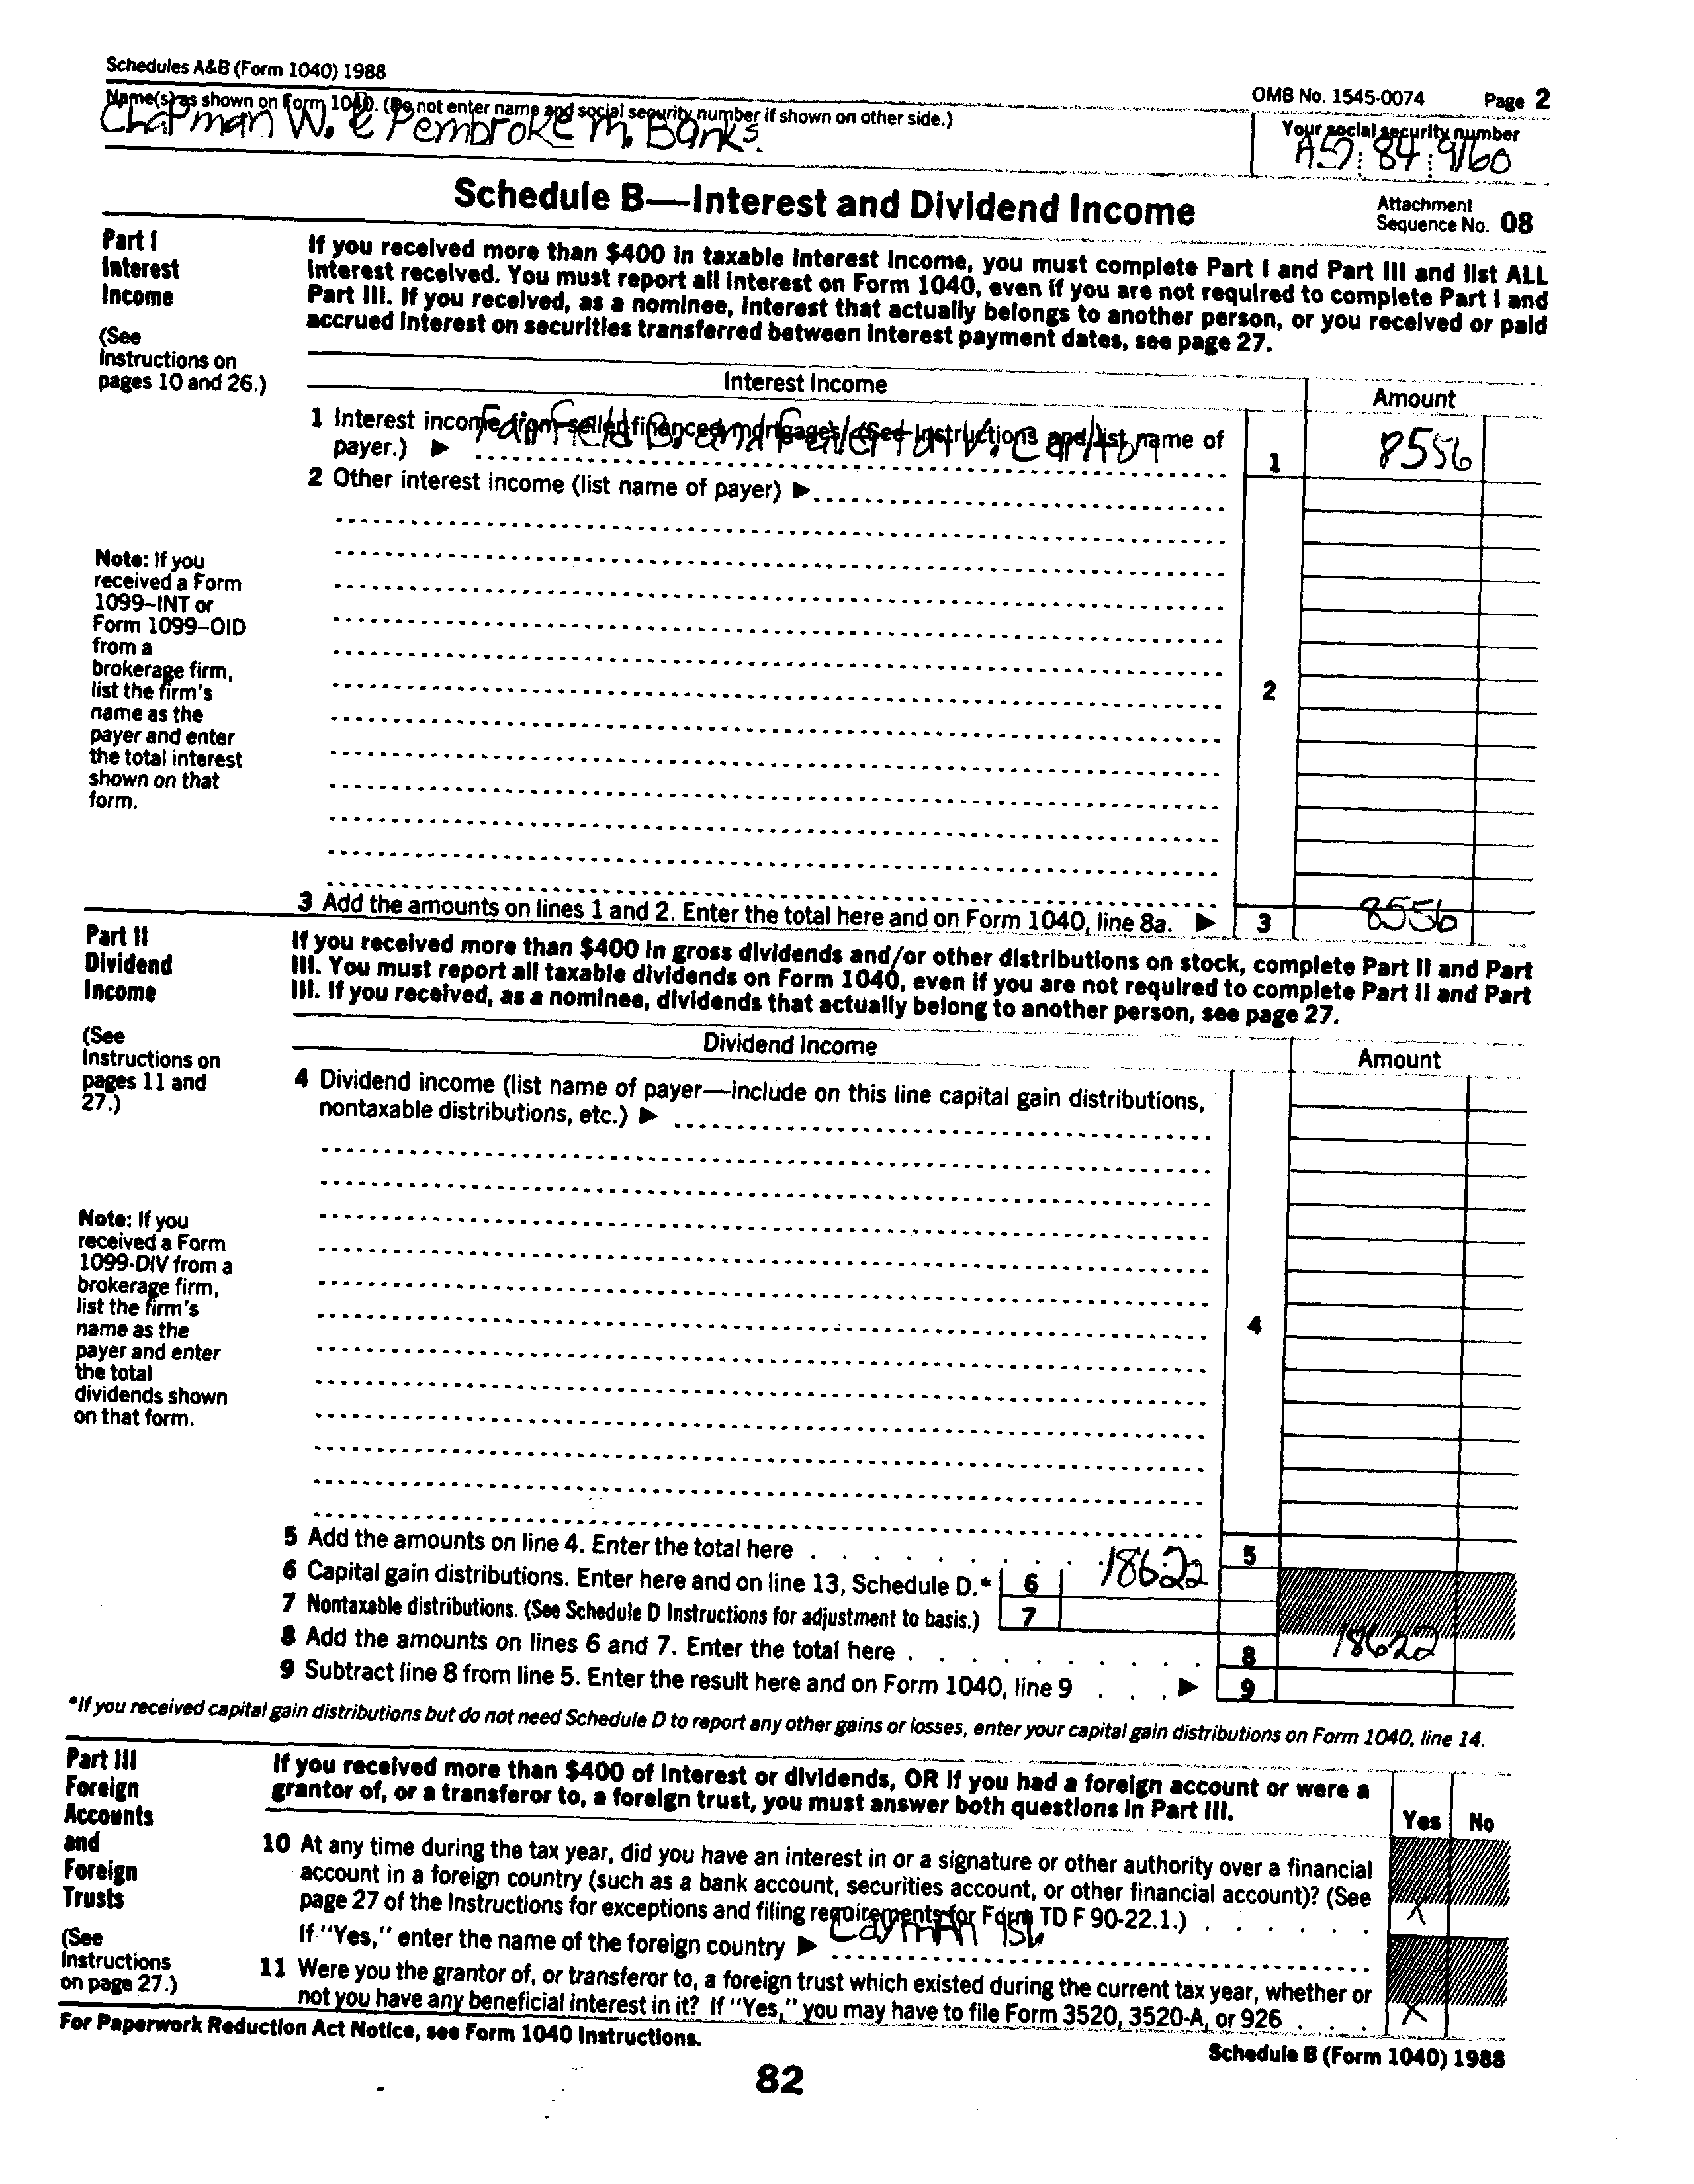 Schedules A&B (Form 1040) 1988
OMB No. 1545-0074 Page 2
Name(s) as shown on Form 1040. (Do not enter name and social security number if shown on other side.)
Chapman W. & Pembroke M. Banks.
Your social security number
A57 84 9160
Schedule B—Interest and Dividend Income
Attachment
Sequence No. 08
Part I
Interest
Income
(See
Instructions on
pages 10 and 26.)
If you received more than $400 in taxable interest income, you must complete Part I and Part III and list ALL
interest received. You must report all interest on Form 1040, even if you are not required to complete Part I and
Part III. If you received, as a nominee, interest that actually belongs to another person, or you received or paid
accrued interest on securities transferred between interest payment dates, see page 27.
Interest Income
Amount
1 Interest income from seller-financed mortgages. (See Instructions and list name of
payer.) ▶ Fairfield B. and Fullerton V. Carlton
1 8556
2 Other interest income (list name of payer) ▶
2
Note: If you
received a Form
1099-INT or
Form 1099-OID
from a
brokerage firm,
list the firm's
name as the
payer and enter
the total interest
shown on that
form.
3 Add the amounts on lines 1 and 2. Enter the total here and on Form 1040, line 8a. ▶ 3 8556
Part II
Dividend
Income
(See
Instructions on
pages 11 and
27.)
If you received more than $400 in gross dividends and/or other distributions on stock, complete Part II and Part
III. You must report all taxable dividends on Form 1040, even if you are not required to complete Part II and Part
III. If you received, as a nominee, dividends that actually belong to another person, see page 27.
Dividend Income
Amount
4 Dividend income (list name of payer—include on this line capital gain distributions,
nontaxable distributions, etc.) ▶
4
Note: If you
received a Form
1099-DIV from a
brokerage firm,
list the firm's
name as the
payer and enter
the total
dividends shown
on that form.
5 Add the amounts on line 4. Enter the total here . . . . . . . . . . . 5
6 Capital gain distributions. Enter here and on line 13, Schedule D.* 6 18622
7 Nontaxable distributions. (See Schedule D Instructions for adjustment to basis.) 7
8 Add the amounts on lines 6 and 7. Enter the total here . . . . . . . . . . 8 18622
9 Subtract line 8 from line 5. Enter the result here and on Form 1040, line 9 . . . ▶ 9
*If you received capital gain distributions but do not need Schedule D to report any other gains or losses, enter your capital gain distributions on Form 1040, line 14.
Part III
Foreign
Accounts
and
Foreign
Trusts
(See
Instructions
on page 27.)
If you received more than $400 of interest or dividends, OR if you had a foreign account or were a
grantor of, or a transferor to, a foreign trust, you must answer both questions in Part III.
Yes No
10 At any time during the tax year, did you have an interest in or a signature or other authority over a financial
account in a foreign country (such as a bank account, securities account, or other financial account)? (See
page 27 of the Instructions for exceptions and filing requirements for Form TD F 90-22.1.) . . . . . . X
If "Yes," enter the name of the foreign country ▶ Cayman Isl
11 Were you the grantor of, or transferor to, a foreign trust which existed during the current tax year, whether or
not you have any beneficial interest in it? If "Yes," you may have to file Form 3520, 3520-A, or 926 . . . X
For Paperwork Reduction Act Notice, see Form 1040 Instructions.
Schedule B (Form 1040) 1988
82